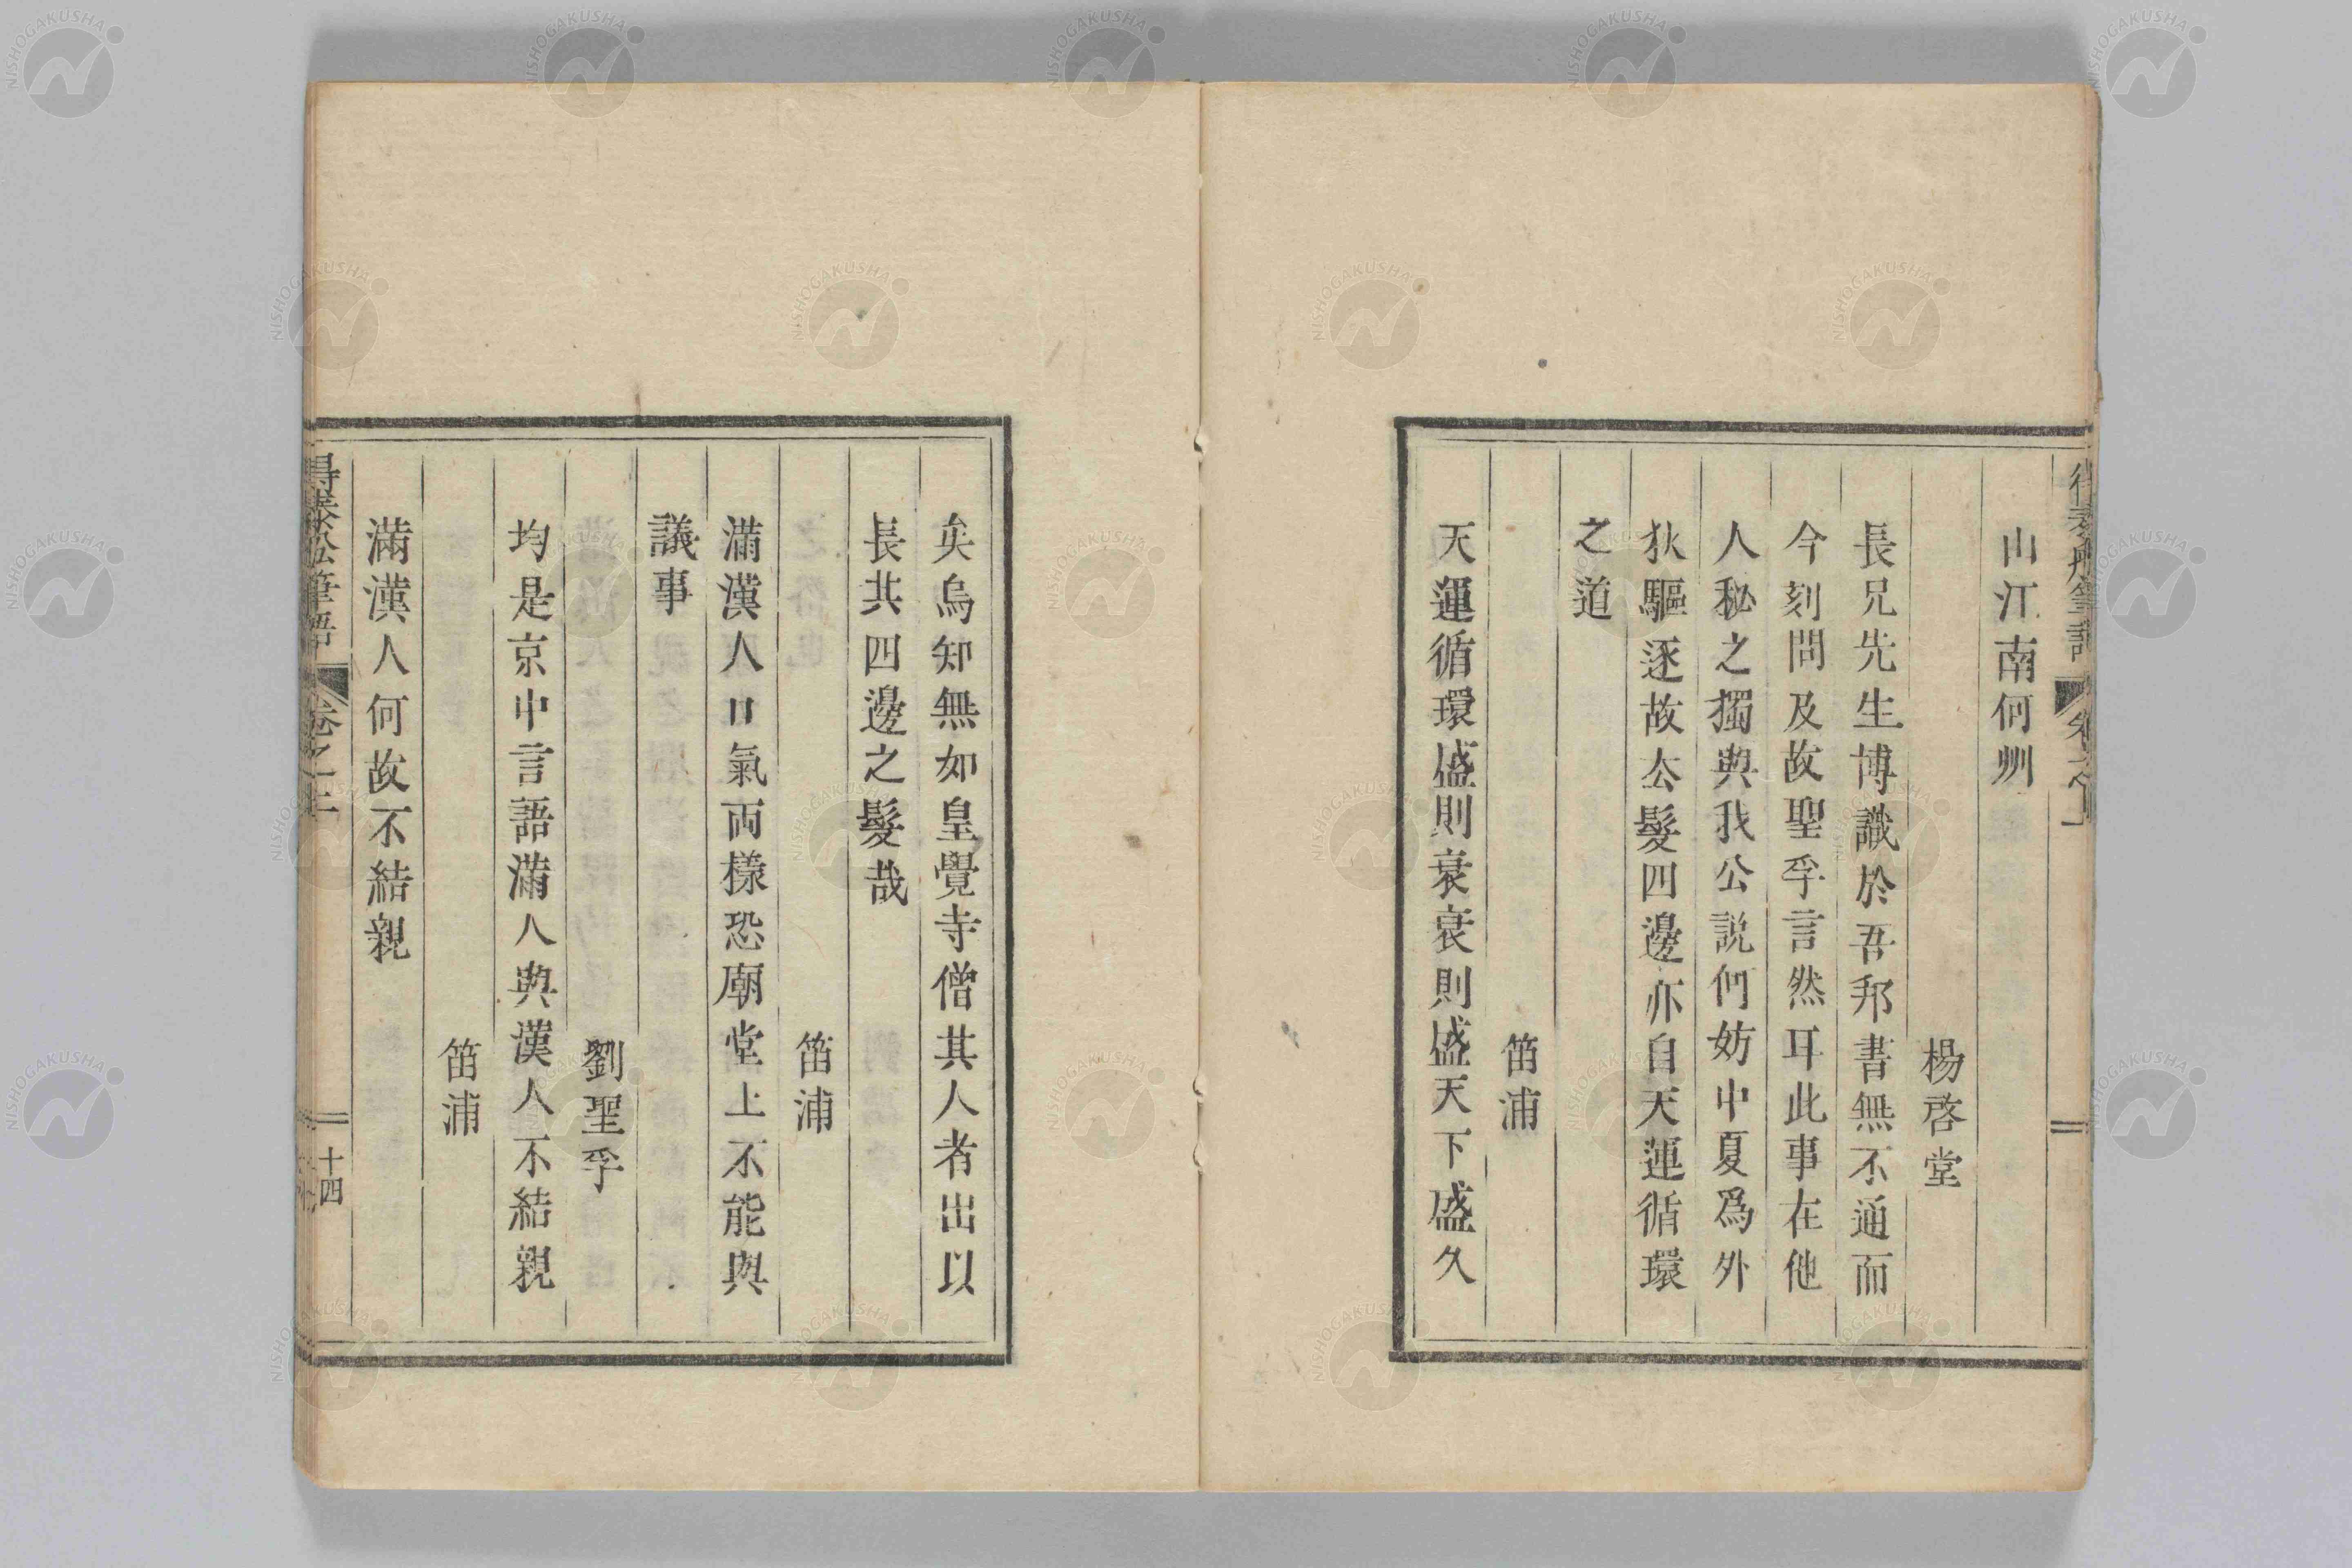 得泰船筆語 卷之上
山江南何州
楊啓堂
長兄先生博識於吾邦書無不通而
今刻問及故聖孚言然耳此事在他
人秘之獨與我公説何妨中夏爲外
狄驅逐故去髮四邊亦自天運循環
之道
笛浦
天運循環盛則衰衰則盛天下盛久
矣烏知無如皇覺寺僧其人者出以
長共四邊之髮哉
笛浦
滿漢人口氣両樣恐廟堂上不能與
議事
劉聖孚
均是京中言語滿人與漢人不結親
笛浦
滿漢人何故不結親
得泰船筆語 卷之上 十四
NISHOGAKUSHA